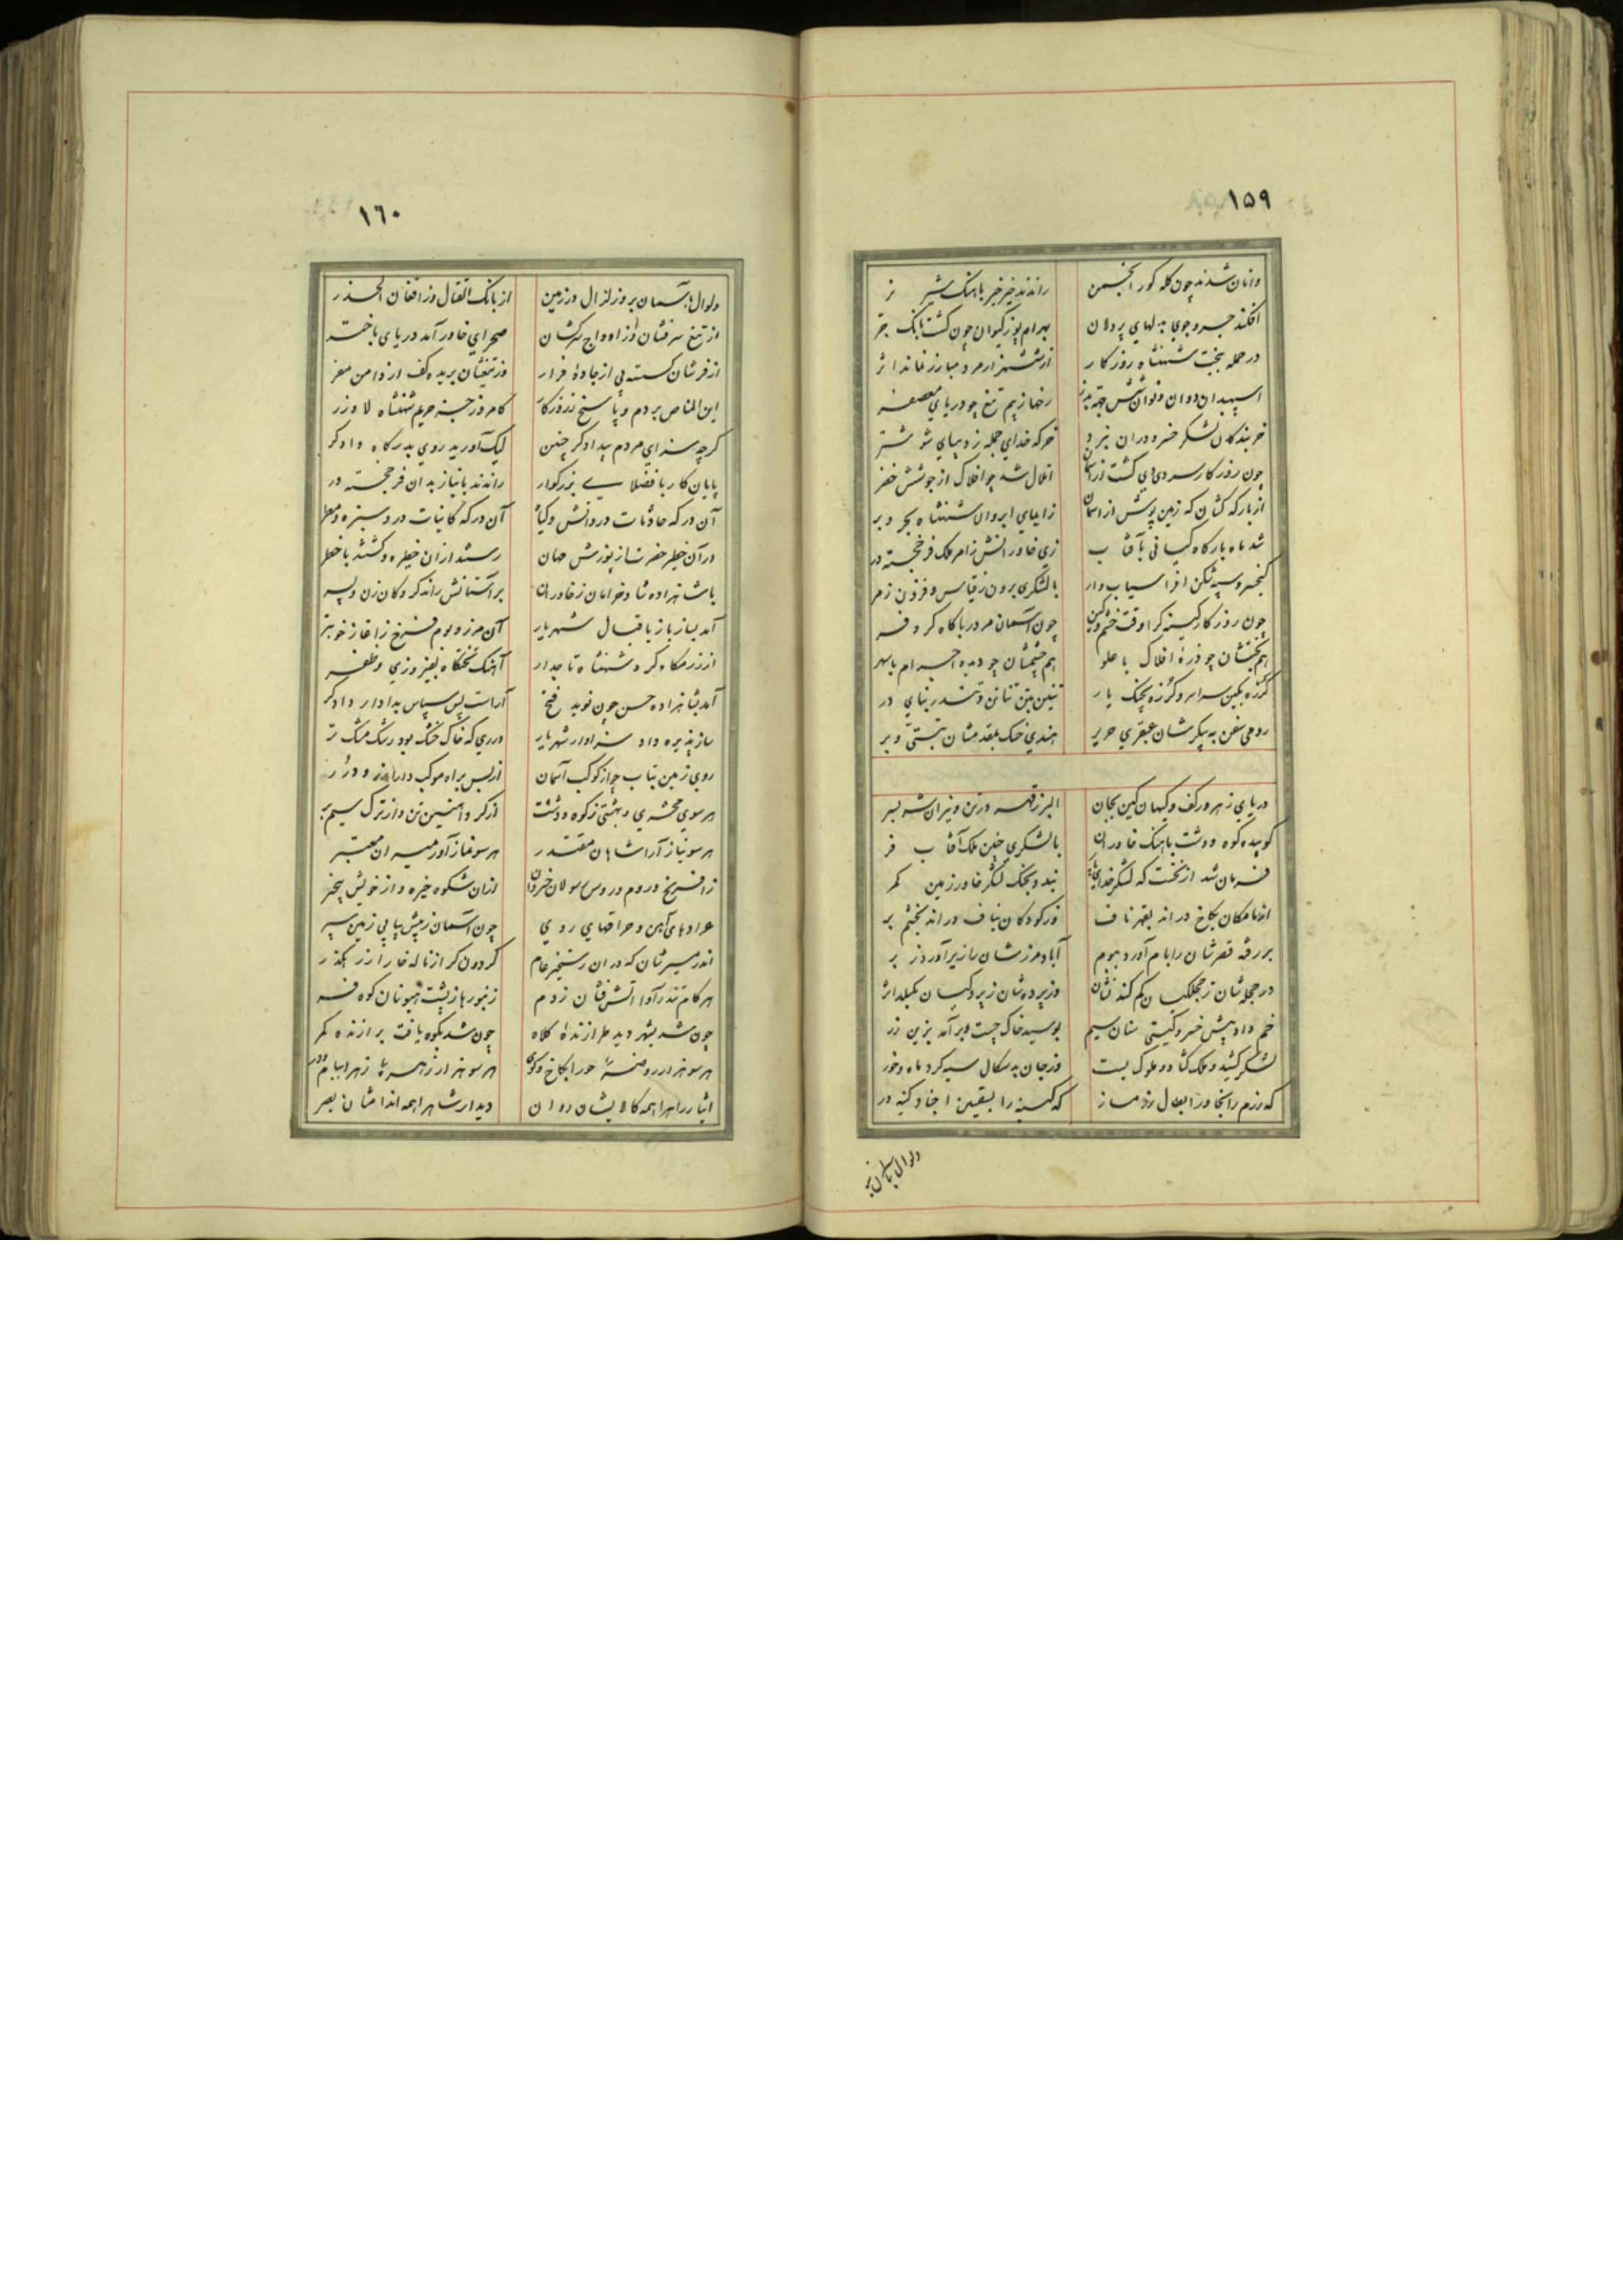 ١٥٩
وانان شدند چون کله کور انجمن راندند خیر خیر باهنک شیر نر
افکند خسرو جوی بدلهای پردلان بهرام پور کیوان چون کشت بانک بر
در حمله بخت شهنشاه روزکار از شش هزار مرد مبارز نماند اثر
اسپهبدان دوان رخها ز بیم تیغ چو دریای معصفر
خربندکان لشکر خسرو دران نبرد خرکه خدای جمله ز دیبای شوشتر
چون روزکار سردی دی کشت اتلال شد چو افلاک از جوشش خضر
از بارکه کشان که زمین پوشش از اسمان زایبای ایوان شهنشاه بحر و بر
شد ماه بارکاه کیانی بآفتاب زی خاور انش زامر ملک فر خجسته در
کیخسرو سپه شکن افراسیاب وار با لشکری برون ز قیاس و فزون ز مر
چون روزکار کینه کرا وقت خشم و کین چون آسمان مر دریا کاه کر و فر
هم بختشان چو ذرهٔ افلاک با علو هم چشمشان چو دیده اجرام با سهر
کرزه بکین سرا و کرزه بچنک یار تنین بتن تناتن و تندر بنای در
رومی سفن به پیکرشان عبقری حریر هندی خسک بمقدمشان تبتی وبر
دریای زهر در کف و کیهان کین بجان البرز قهر در تن و نیران شر ببر
کوبیده کوه و دشت باهنک خاوران با لشکری چنین ملک آفتاب فر
فرمان شد از نخست که لشکر خدای بندد بجنک لشکر خاور زمین کمر
انامکان بکاخ دراند بقهر ناف ور کودکان بناف دراند بخشم بر
بر رفه قصرشان رابام آورد بیوم آباد مرزشان را زیر آورد زبر
در حجله شان ز حجلکیان کم کند نشان وز پرده شان ز پردکیان بکسلد اثر
خم داد پیش خسرو کیتی ستان سیم بوسید خاک چست و بر آمد بزین زر
لشکر کشید و ملک کشاد و ملوک بست وز جان بدسکال سیه کرد ماه و خور
که رزم را بخاور ابطال رزمساز که کینه را بسقین اجناد کینه در
ولوال باسمان بر
١٦٠
ولوال باسمان بر و زلزال در زمین از بانک القتال وز افغان الحذر
از تیغ سرفشان و از اوداج سرکشان صحرای خاور آمد دریای باختر
از فرشان کسسته پی از جادهٔ فرار وز تیغشان بریده کف از دامن مفر
این المناص مردم و پاسخ ز روزکار کامروز جز حریم شهنشاه لا وزر
کرچه سزای مردم بیدادکر چنین لیک آورید روی بدرکاه دادکر
پایان کار با فضلایی بزرکوار راندند با نیاز بدان فر خجسته در
آن درکه حادثات درو دانش و کیا آن درکه کاینات درو سبزه و مطر
در آن خطر حضرت از پوزش جهان رستند ازان خطیره و کشتند با خطر
باشاهزاده شاد و خرامان ز خاوران بر آستانش راند کروکان زن و پسر
آمد بساز باز باقبال شهریار آن مرز و بوم فرخ ز آغاز خوبتر
از زر مکاه کرد شهنشاه تاجدار آهنک تختکاه بفیروزی و ظفر
آمد بشاهزاده حسن چون نوید فتح آراست پس سپاس بدادار دادکر
ساز پذیره داد سزاوار شهریار در ری که خاک خشک بود رشک مشک تر
روی زمین بتاب چو از کوکب آسمان از بس براه موکب دارا زر و درر
هر سوی محشری و بهشتی ز کوه و دشت از کرد آهنین تن و از ترک سیمبر
هر سو نیاز آرا شاهان مقتدر هر سو نماز آور میران معتبر
ز افرنج و روم و روس رسولان خسروان ازان شکوه خیره و از خویش بیخبر
عراده های آهن و حراقهای روی چون آسمان ز پیش پیاپی زمین سپر
اندر مسیرشان که دران رستخیز عام کردون کر از ناله خارا ز رهکذر
هر کام تندر آوا آتش فشان ز دم زنبورها ز پشت هیونان کوه فر
چون شه بشهر دید طرازندهٔ کلاه چون شد بکوه یافت برازنده کمر
هر سو هزار روضه حورا بکاخ و کوی هر سو هزار زهره زهرا ببام و در
ایثار راهرا همه کالایشان روان دیدار شاهرا همه اندامشان بصر